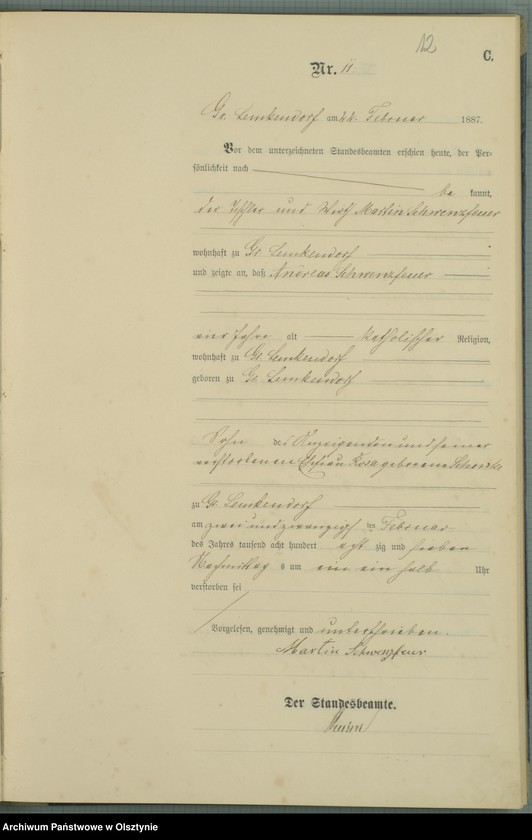 12
C.
Nr. 11
Gr. Lemkendorf am 22. Februar 1887.
Vor dem unterzeichneten Standesbeamten erschien heute, der Per-
sönlichkeit nach
be kannt,
der und Wirth Martin Schwenzfeuer
wohnhaft zu Gr. Lemkendorf
und zeigte an, daß Andreas Schwenzfeuer
Jahre alt katholischer Religion,
wohnhaft zu Gr. Lemkendorf
geboren zu Gr. Lemkendorf
Sohn des Anzeigenden und seiner
verstorbenen Ehefrau Rosa geborene
zu Gr. Lemkendorf
am zwei und zwanzigsten Februar
des Jahres tausend acht hundert acht zig und sieben
Nachmittag s um ein ein halb Uhr
verstorben sei
Vorgelesen, genehmigt und unterschrieben.
Martin Schwenzfeuer
Der Standesbeamte.
Archiwum Państwowe w Olsztynie